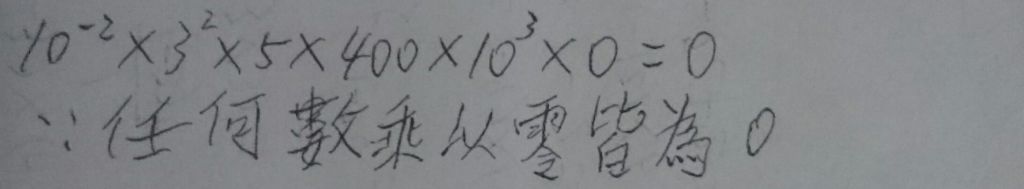 10⁻²×3²×5×400×10³×0=0
∵任何數乘以零皆為0